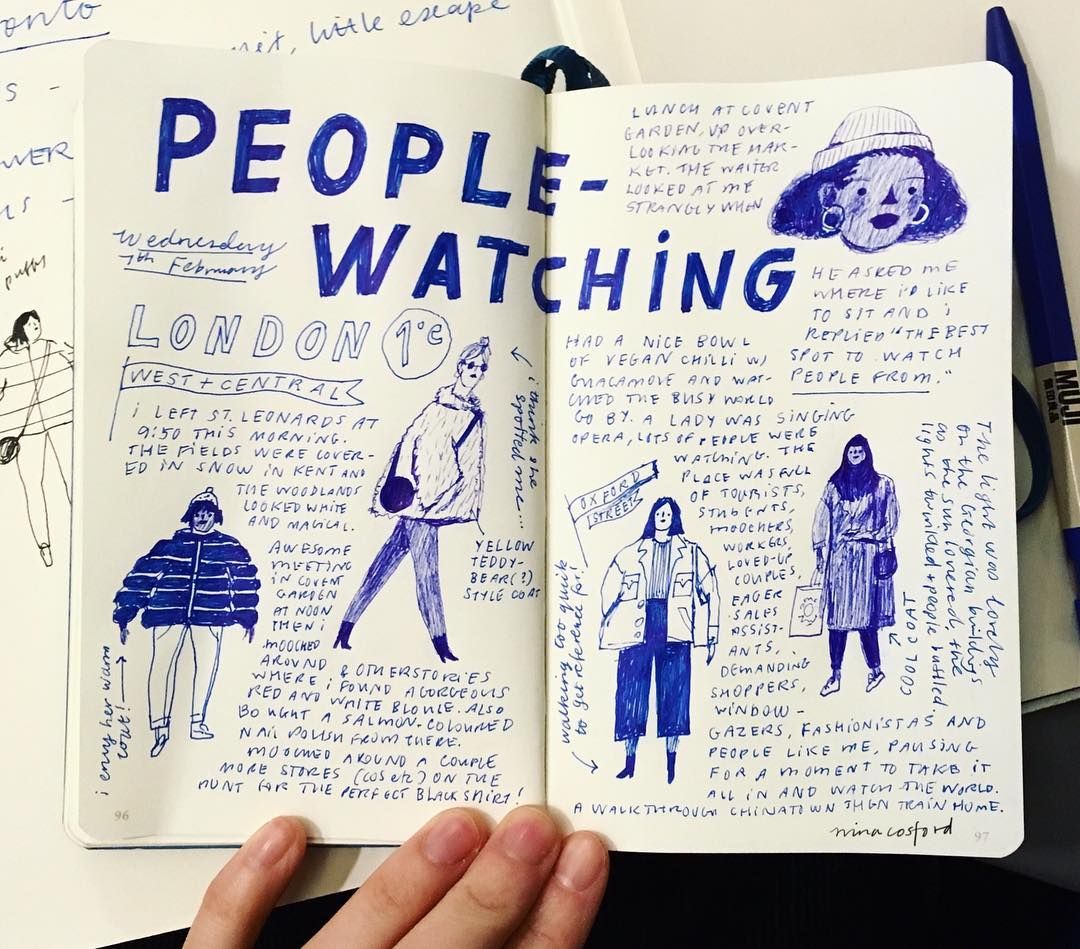 onto
little escape
S -
WER
PEOPLE-
WATCHING
Wednesday
7th February
LONDON 1°c
WEST + CENTRAL
i LEFT ST. LEONARDS AT
9:50 THIS MORNING.
THE FIELDS WERE COVER-
ED IN SNOW IN KENT AND
THE WOODLANDS
LOOKED WHITE
AND MAGICAL.
AWESOME
MEETING
IN COVENT
GARDEN
AT NOON
THEN i
MOOCHED
AROUND & OTHER STORIES
WHERE i FOUND A GORGEOUS
RED AND WHITE BLOUSE. ALSO
BOUGHT A SALMON-COLOURED
NAIL POLISH FROM THERE.
MOOCHED AROUND A COUPLE
MORE STORES (COS etc) ON THE
HUNT FOR THE PERFECT BLACK SHIRT!
i envy her warm
coat!
i think she
spotted me...
YELLOW
TEDDY-
BEAR(?)
STYLE COAT
96
LUNCH AT COVENT
GARDEN, UP OVER-
LOOKING THE MAR-
KET. THE WAITER
LOOKED AT ME
STRANGLY WHEN
HE ASKED ME
WHERE I'D LIKE
TO SIT AND i
REPLIED "THE BEST
SPOT TO WATCH
PEOPLE FROM."
HAD A NICE BOWL
OF VEGAN CHILLI W/
GUACAMOLE AND WAT-
CHED THE BUSY WORLD
GO BY. A LADY WAS SINGING
OPERA, LOTS OF PEOPLE WERE
WATCHING. THE
PLACE WAS FULL
OF TOURISTS,
STUDENTS,
MOOCHERS,
WORKERS,
LOVED-UP
COUPLES,
EAGER
SALES
ASSIST-
ANTS,
DEMANDING
SHOPPERS,
WINDOW-
GAZERS, FASHIONISTAS AND
PEOPLE LIKE ME, PAUSING
FOR A MOMENT TO TAKE IT
ALL IN AND WATCH THE WORLD.
A WALK THROUGH CHINATOWN THEN TRAIN HOME.
OXFORD
STREET
walking too quick
to get reference for!
COOL COAT
The light was lovely
on the Georgian buildings
as the sun lowered, the
lights twinkled + people bustled
ninacosford
97
MUJI